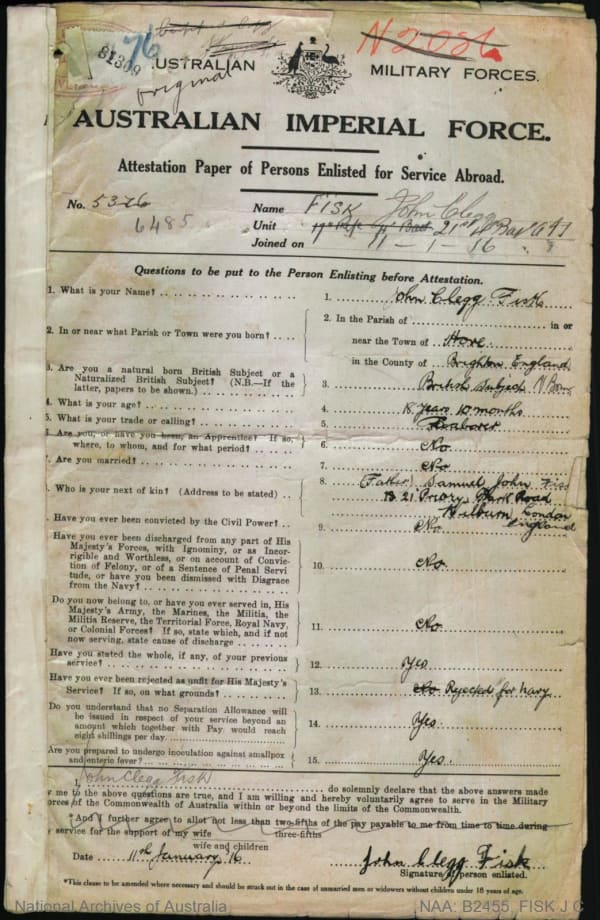 76
81309
N2086
AUSTRALIAN MILITARY FORCES.
original
AUSTRALIAN IMPERIAL FORCE.
Attestation Paper of Persons Enlisted for Service Abroad.
No. 5376 Name FISK John Clegg
6485 Unit 21st
Joined on 11-1-16
Questions to be put to the Person Enlisting before Attestation.
1. What is your Name? 1. John Clegg Fisk
2. In or near what Parish or Town were you born? 2. In the Parish of in or
near the Town of Hove
in the County of Brighton England
3. Are you a natural born British Subject or a
Naturalized British Subject? (N.B.—If the
latter, papers to be shown.) 3. British Subject N Born
4. What is your age? 4. 18 years 10 months
5. What is your trade or calling? 5. Labourer
6. Are you, or have you been, an Apprentice? If so,
where, to whom, and for what period? 6. No
7. Are you married? 7. No
8. Who is your next of kin? (Address to be stated) 8. (Father) Samuel John Fisk
21 Priory Park Road
Kilburn London
England
9. Have you ever been convicted by the Civil Power? 9. No
Have you ever been discharged from any part of His
Majesty's Forces, with Ignominy, or as Incor-
rigible and Worthless, or on account of Convic-
tion of Felony, or of a Sentence of Penal Servi-
tude, or have you been dismissed with Disgrace
from the Navy? 10. No
Do you now belong to, or have you ever served in, His
Majesty's Army, the Marines, the Militia, the
Militia Reserve, the Territorial Force, Royal Navy,
or Colonial Forces? If so, state which, and if not
now serving, state cause of discharge 11. No
Have you stated the whole, if any, of your previous
service? 12. Yes
Have you ever been rejected as unfit for His Majesty's
Service? If so, on what grounds? 13. No Rejected for Navy
Do you understand that no Separation Allowance will
be issued in respect of your service beyond an
amount which together with Pay would reach
eight shillings per day. 14. Yes.
Are you prepared to undergo inoculation against smallpox
and enteric fever? 15. Yes.
John Clegg Fisk do solemnly declare that the above answers made
by me to the above questions are true, and I am willing and hereby voluntarily agree to serve in the Military
Forces of the Commonwealth of Australia within or beyond the limits of the Commonwealth.
*And I further agree to allot not less than two-fifths of the pay payable to me from time to time during
my service for the support of my wife three-fifths
wife and children
Date 11th January 16 John Clegg Fisk
Signature of person enlisted.
*This clause to be amended where necessary and should be struck out in the case of unmarried men or widowers without children under 18 years of age.
National Archives of Australia NAA: B2455, FISK J C